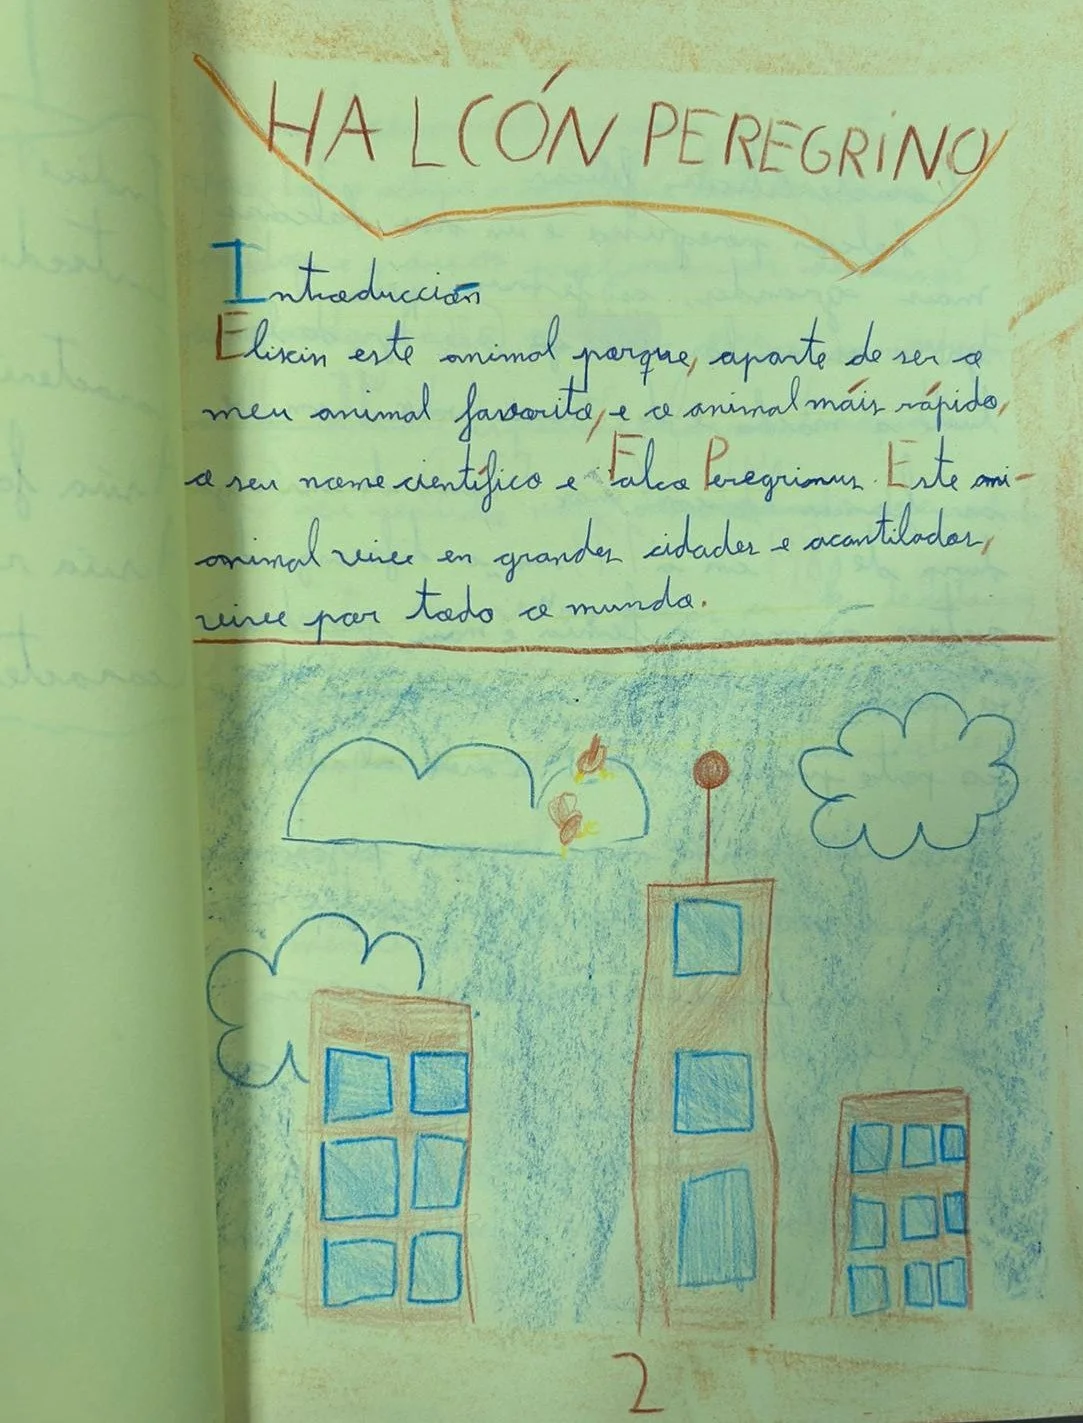 HALCÓN PEREGRINO
Introducción
Elixin este animal porque, aparte de ser o
meu animal favorito, e o animal máis rápido,
o seu nome científico e Falco Peregrinus. Este ani-
animal vive en grandes cidades e acantilados,
vive por todo o mundo.
2